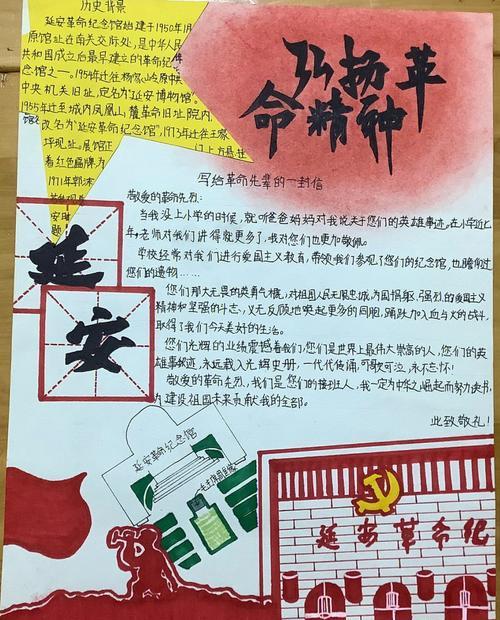 历史背景
延安革命纪念馆始建于1950年1月
原馆址在南关交际处,是中华人民
共和国成立后最早建立的革命纪
念馆之一。1954年迁在杨家岭原中共
中央机关旧址,定名为"延安博物馆"。
1955年迁至城内凤凰山麓革命旧址院内,
改名为"延安革命纪念馆",1973年迁往王家
坪现址。展馆正
门上方悬挂
着红色匾牌为
1971年郭沫
若
安时
题
弘扬革
命精神
写给革命先辈的一封信
敬爱的革命先烈:
当我没上小学的时候,就听爸爸妈妈对我说关于您们的英雄事迹,在小学近七
年,老师对我们讲得就更多了,我对您们也更加敬佩。
学校经常对我们进行爱国主义教育,带领我们参观了您们的纪念馆,也瞻仰过
您们的遗物……
您们那大无畏的英勇气概,对祖国人民无限忠诚,为国捐躯,强烈的爱国主义
精神和坚强的斗志,义无反顾地唤起更多的同胞,踊跃加入血与火的战斗,
取得了我们今天美好的生活。
您们光辉的业绩震撼着我们,您们是世界上最伟大崇高的人,您们的英
雄事迹,永远载入光辉史册,一代代传诵,可歌可泣,永不忘怀!
敬爱的革命先烈,我们是您们的接班人,我一定为中华之崛起而努力读书,
为建设祖国未来贡献我的全部。
此致敬礼!
延
安
延安革命纪念馆
毛主席
延安革命纪